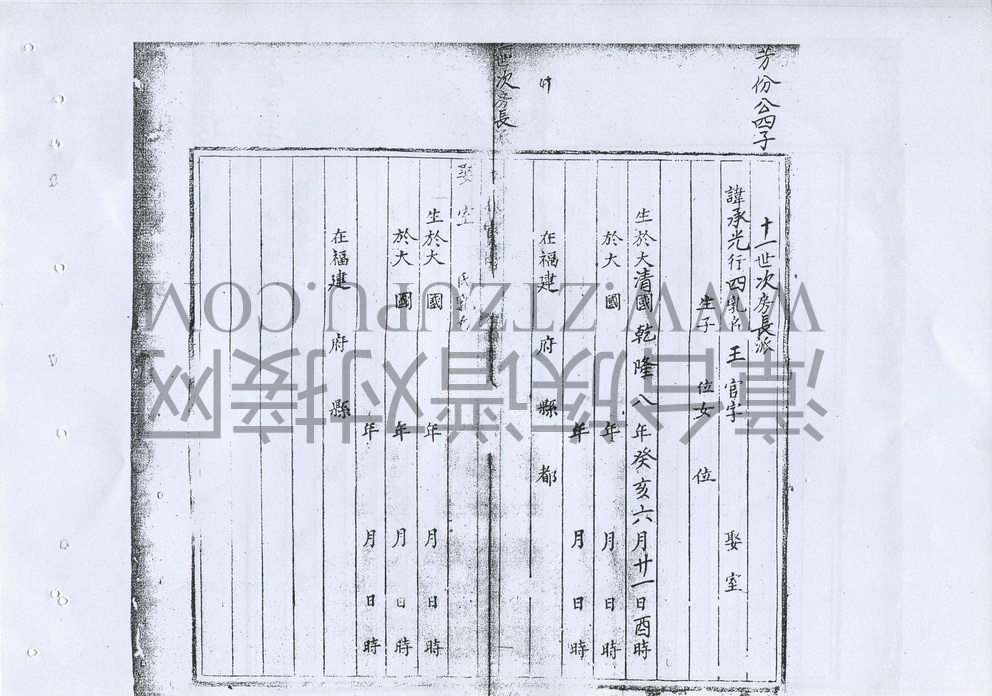 芳份公四子
十一世次房長派
諱承光行四乳名王官字 娶室
生子 位女 位
生於大清國乾隆八年癸亥六月廿一日酉時
於大 國 年 月 日 時
年 月 日 時
在福建 府 縣 都
世次房長派
娶室 氏乳名
生於大 國 年 月 日 時
於大 國 年 月 日 時
年 月 日 時
在福建 府 縣
漳台族谱对接网
WWW.ZTZUPU.COM